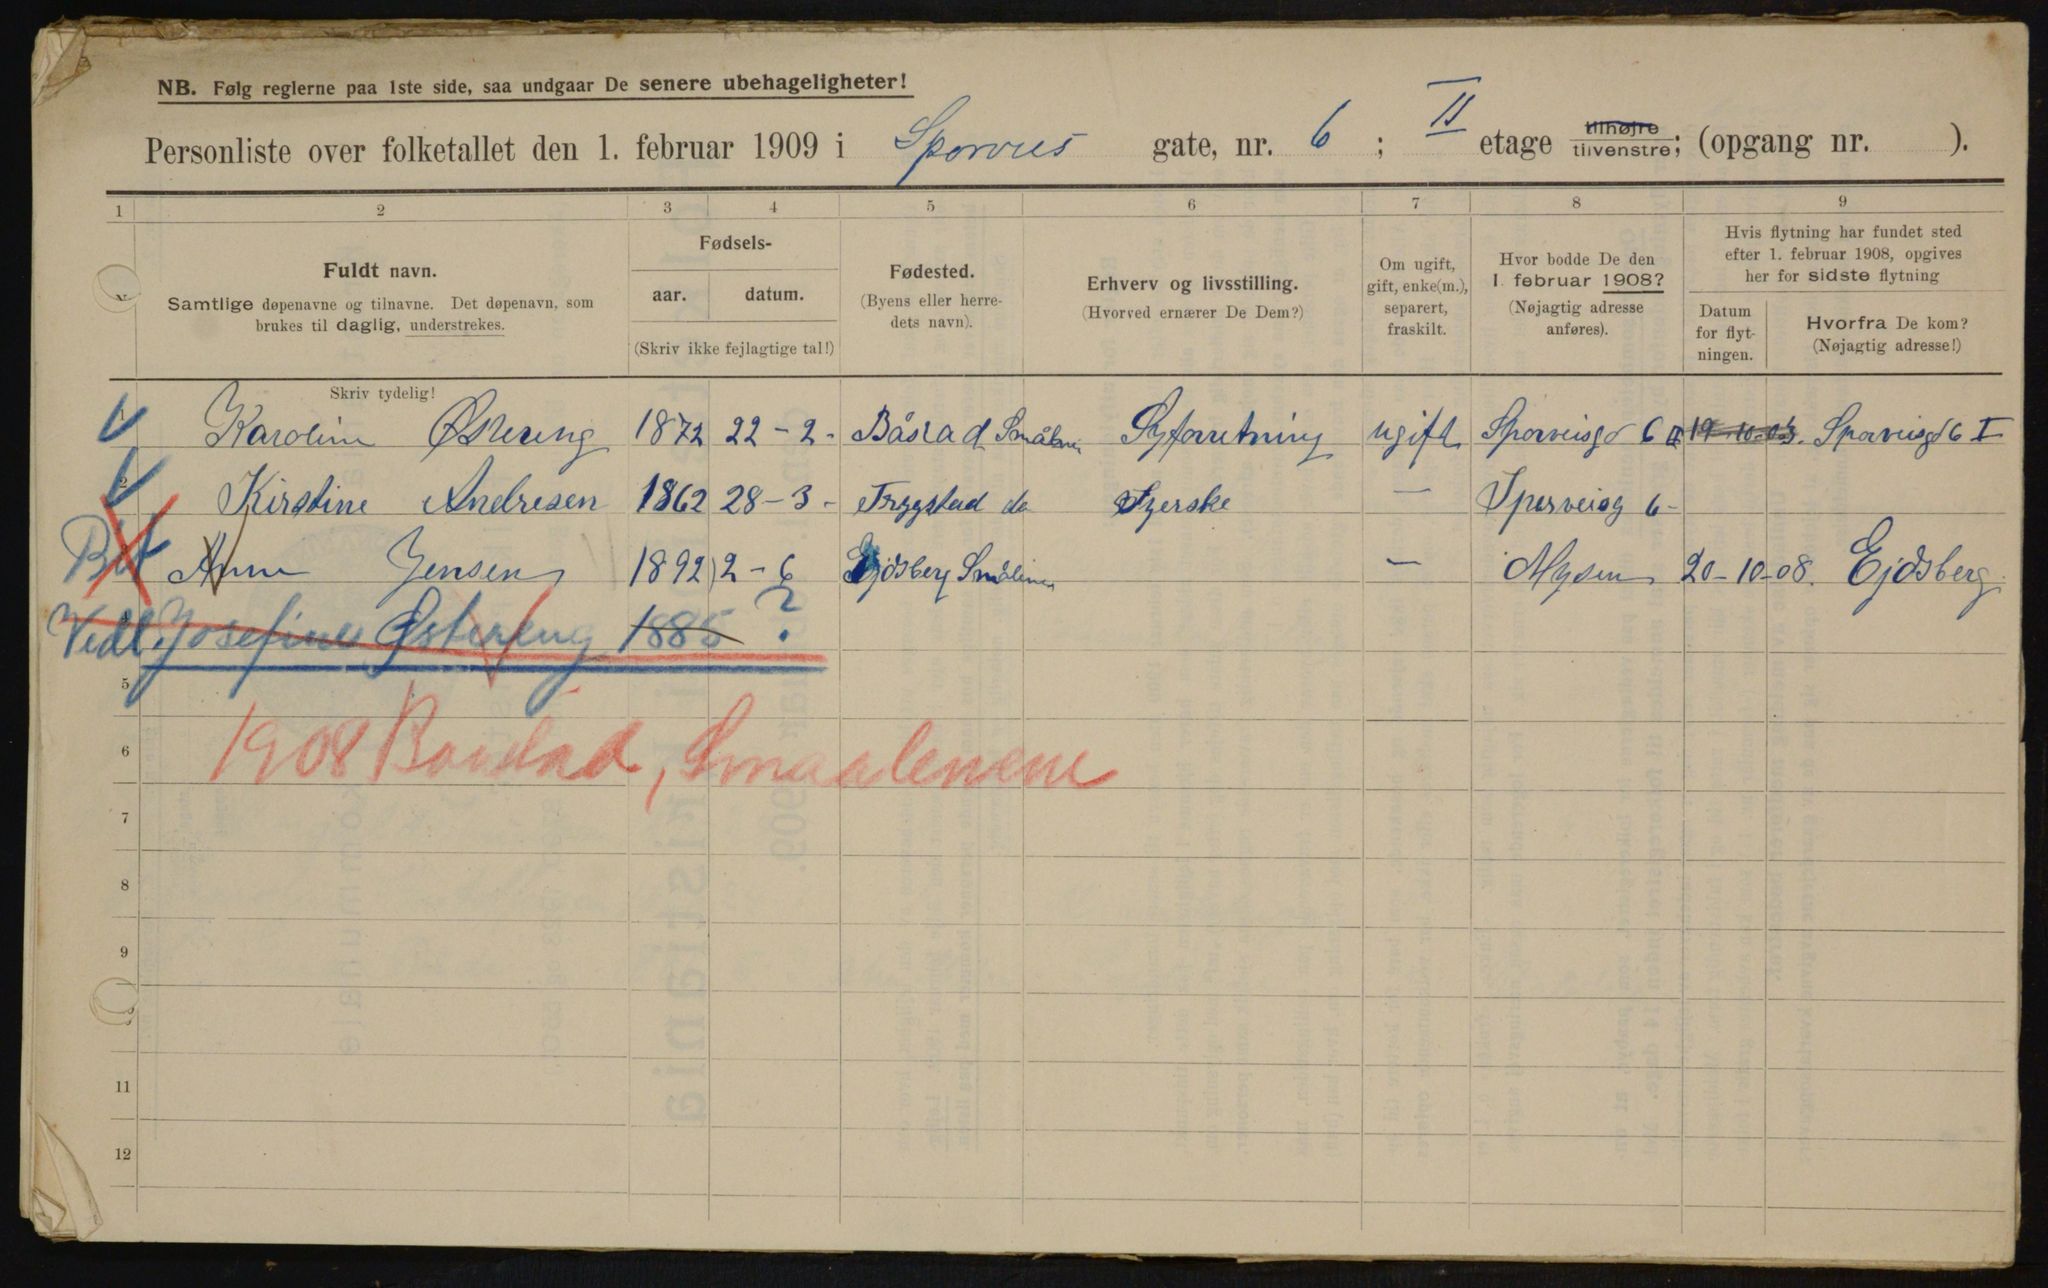 NB. Følg reglerne paa 1ste side, saa undgaar De senere ubehageligheter!
Personliste over folketallet den 1. februar 1909 i Sporveis gate, nr. 6 ; II etage tilhøjre tilvenstre; (opgang nr. ).
1 2 3 4 5 6 7 8 9
Fuldt navn.
Samtlige døpenavne og tilnavne. Det døpenavn, som
brukes til daglig, understrekes.
Fødsels-
aar. datum.
(Skriv ikke fejlagtige tal!)
Fødested.
(Byens eller herre-
dets navn).
Erhverv og livsstilling.
(Hvorved ernærer De Dem?)
Om ugift,
gift, enke(m.),
separert,
fraskilt.
Hvor bodde De den
1. februar 1908?
(Nøjagtig adresse
anføres).
Hvis flytning har fundet sted
efter 1. februar 1908, opgives
her for sidste flytning
Datum
for flyt-
ningen.
Hvorfra De kom?
(Nøjagtig adresse!)
Skriv tydelig!
1 Karoline Østereng 1872 22-2- Båstad Smålene Syforretning ugift Sporveisgd 6 II 19-10-03. Sporveisgd 6 I
2 Kirstine Andresen 1862 28-3- Trygstad do Syerske — Sporveisg 6-
Anna Jensen 1892 2-6 Ejdsberg Smålenene — Mysen 20-10-08. Ejdsberg
Vedl. Josefine Østereng 1885 ?
5
1908 Baastad, Smaalenene
6
7
8
9
11
12